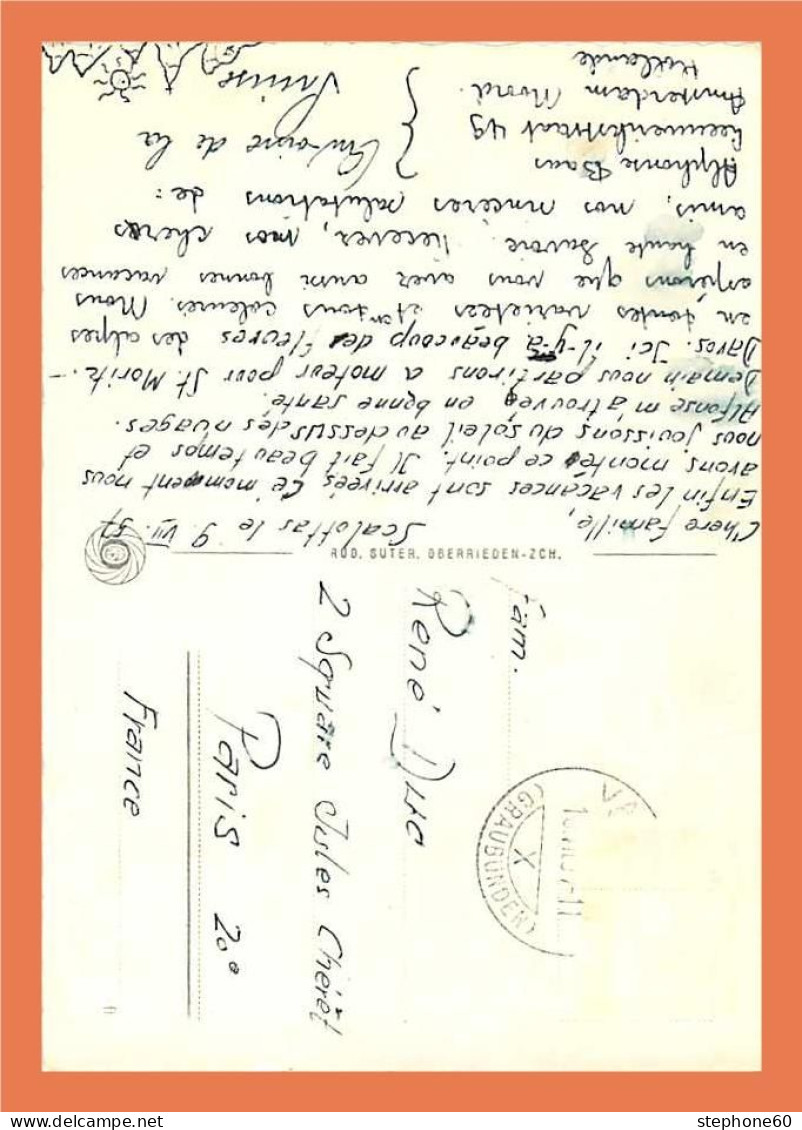 Scalottas le 9. VII. 57
Chere famille,
Enfin les vacances sont arrivées, Ce moment nous
avons monter ce point. Il fait beau temps et
nous jouissons du soleil au dessus des nuages.
Alfonse m'a trouvée en bonne santé.
Demain nous partirons a moteur pour St. Moritz -
Davos. Ici il-y-a beaucoup des fleures des alpes
en toutes varietees et en tous coleures. Nous
asperons que vous avez aussi bonnes vacances
en haute Savoie. Recever, mos cheres
amis, nos sinceres salutations de:
Alphonse Baas
Leeuwerikstraat 49
Amsterdam Noord.
Hollande
} de la
Suisse
RUD. SUTER. OBERRIEDEN-ZCH.
Fam.
René Duo
2 Square Jsles Chéret
Paris 20e
France
(GRAUBÜNDEN)
X
stephone60